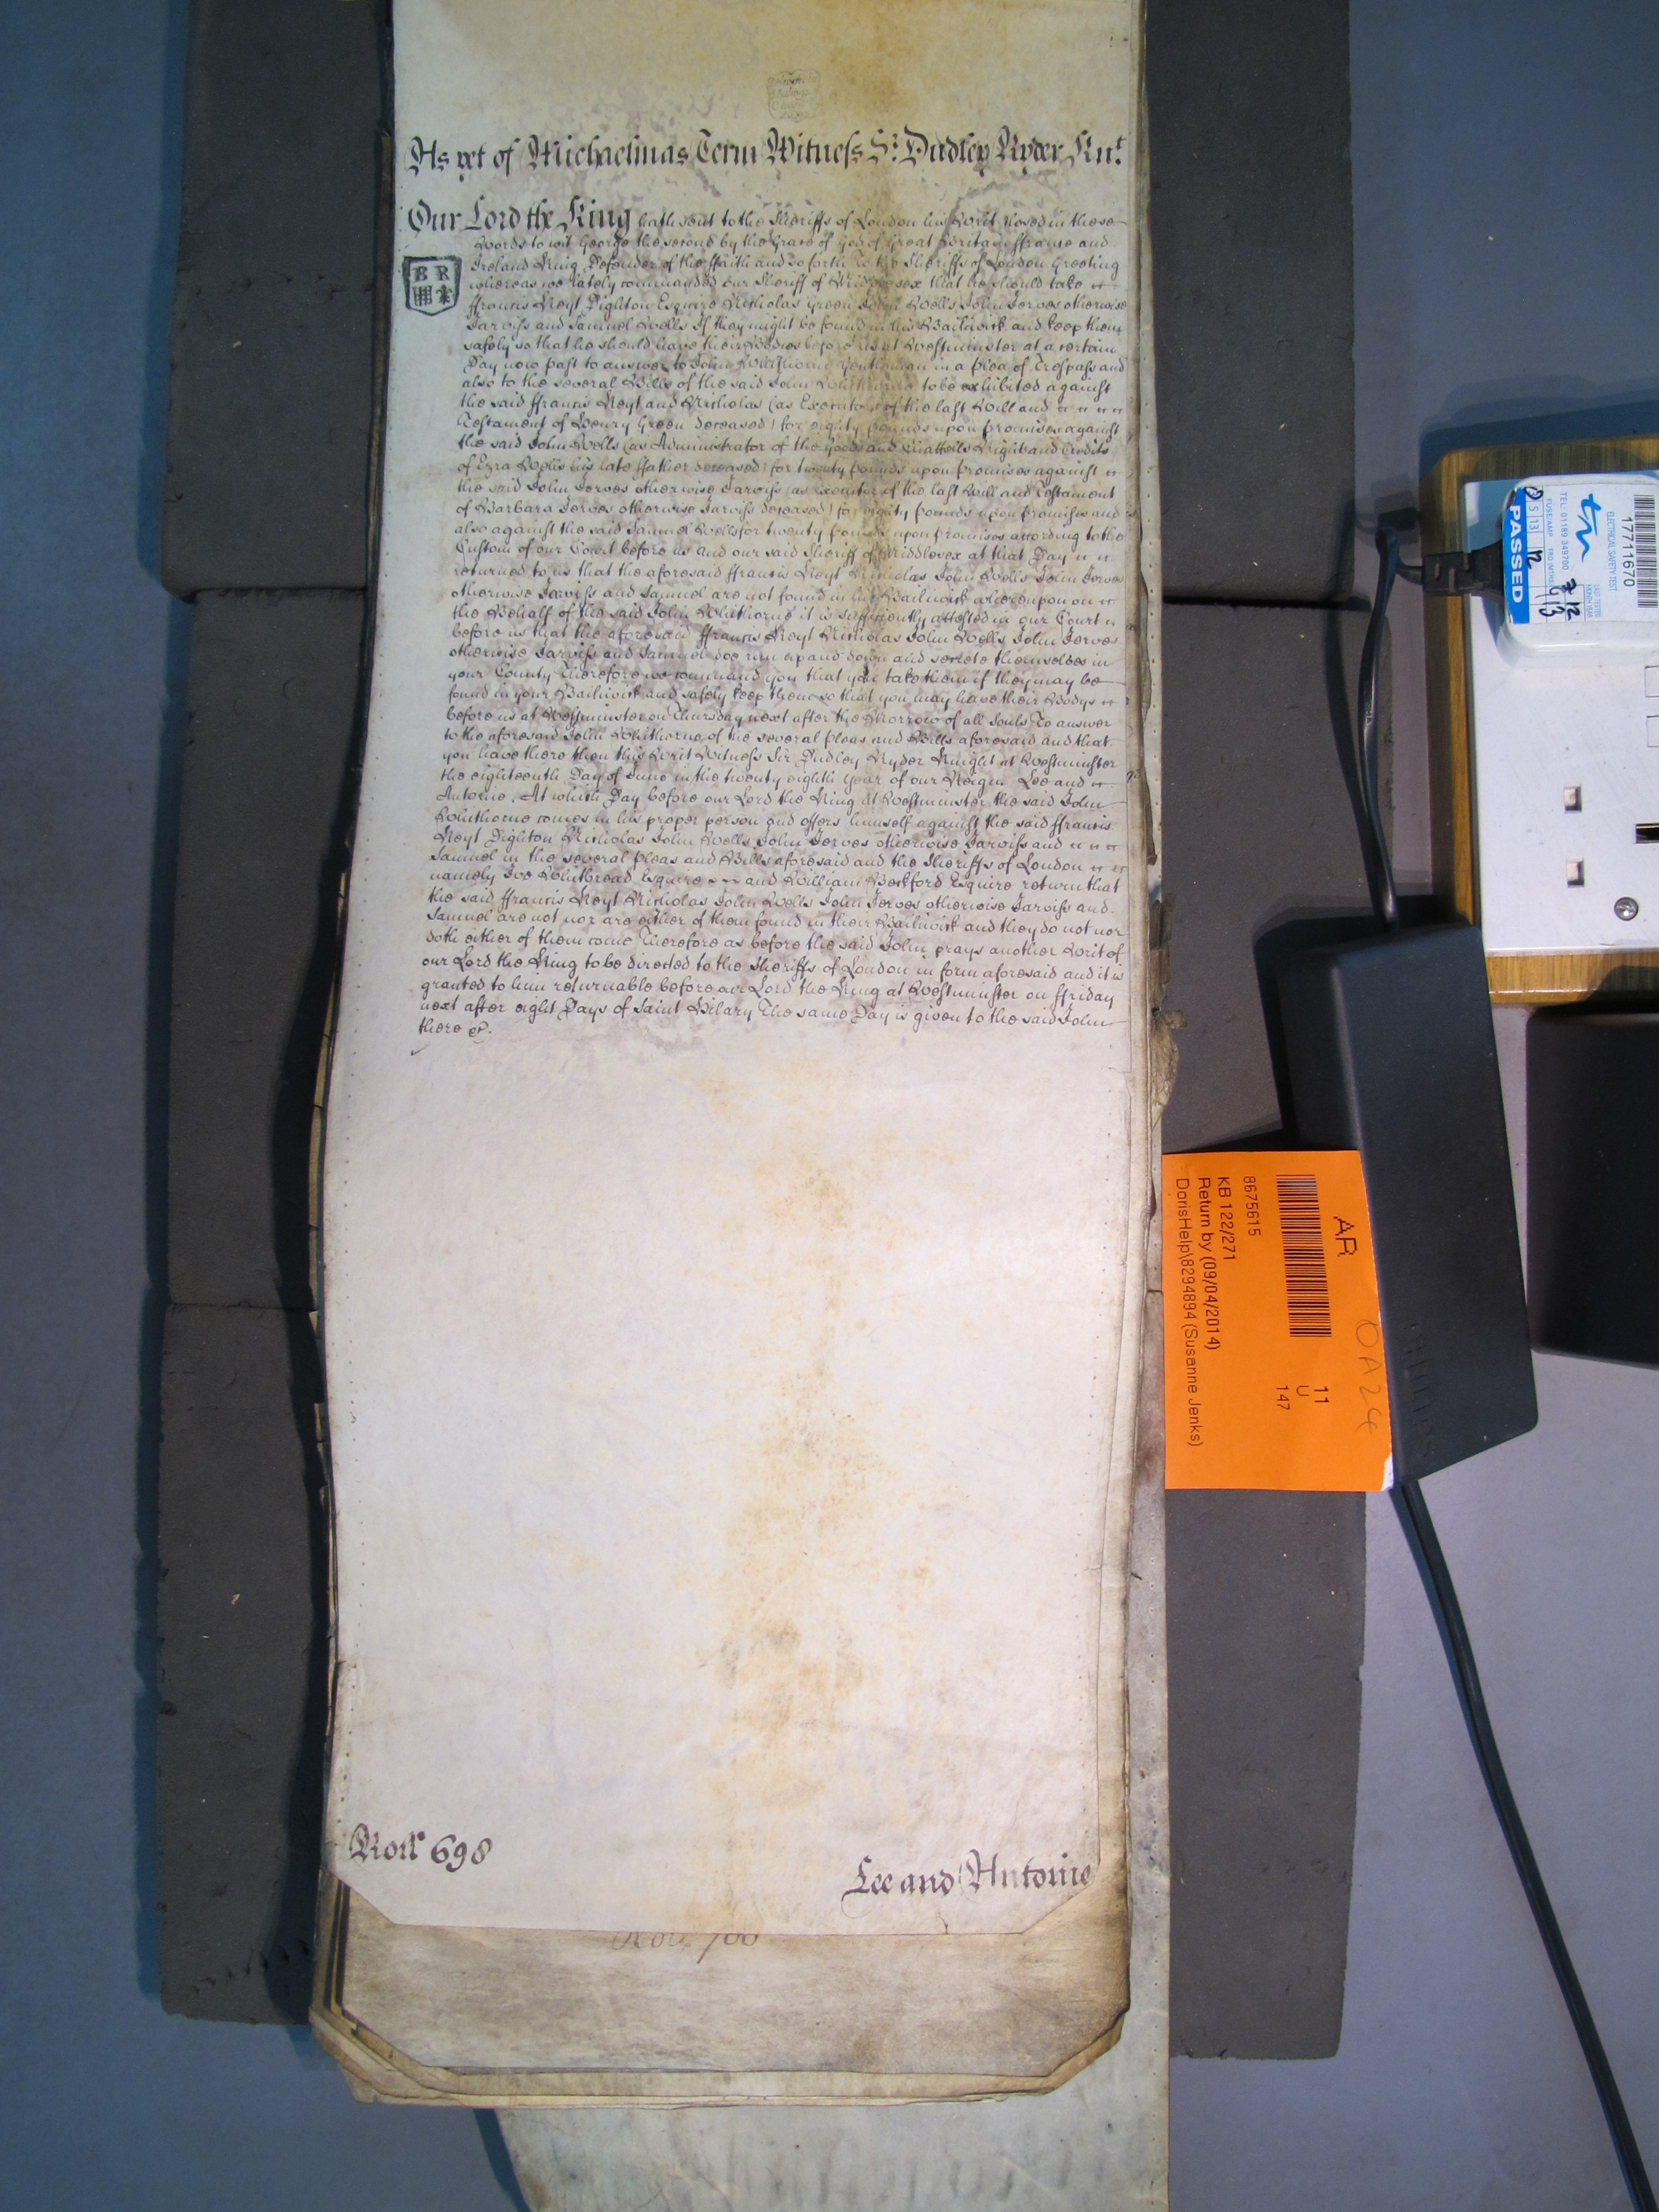 As yet of Michaelmas Term Witness Sr. Dudley Ryder Knt.
Our Lord the King hath sent to the Sheriffs of London his Writ closed in these
Words to wit George the second by the Grace of God of Great Britain ffrance and
Ireland King Defender of the ffaith and so forth To the Sheriffs of London Greeting
whereas we lately commanded our Sheriff of Middlesex that he should take
ffrancis Keyt Dighton Esquire Nicholas Green John Wells John Jerves otherwise
Jarviss and Samuel Wells If they might be found in his Bailiwick and keep them
safely so that he should have their Bodies before us at Westminster at a certain
Day now past to answer to John Whithorne Gentleman in a plea of Trespass and
also to the several Bills of the said John Whithorne to be exhibited against
the said ffrancis Keyt and Nicholas (as Executors of the last Will and
Testament of Henry Green deceased) for eighty pounds upon promises against
the said John Wells (as Administrator of the Goods and Chattells Rights and Credits
of Ezra Wells his late ffather deceased) for twenty pounds upon promises against
the said John Jerves otherwise Jarviss (as executor of the last Will and Testament
of Barbara Jerves otherwise Jarviss deceased) for eighty pounds upon promises and
also against the said Samuel Wells for twenty pounds upon promises according to the
Custom of our Court before us and our said Sheriff of Middlesex at that Day
returned to us that the aforesaid ffrancis Keyt Nicholas John Wells John Jerves
otherwise Jarviss and Samuel are not found in his Bailiwick whereupon on
the Behalf of the said John Whithorne it is sufficiently attested in our Court
before us that the aforesaid ffrancis Keyt Nicholas John Wells John Jerves
otherwise Jarviss and Samuel doe run up and down and secrete themselves in
your County Therefore we command you that you take them if they may be
found in your Bailiwick and safely keep them so that you may have their Bodys
before us at Westminster on Thursday next after the Morrow of all Souls To answer
to the aforesaid John Whithorne of the several pleas and Bills aforesaid and that
you have there then this Writ Witness Sir Dudley Ryder Knight at Westminster
the eighteenth Day of June in the twenty eighth year of our Reign Lee and
Antonie. At which Day before our Lord the King at Westminster the said John
Whithorne comes in his proper person and offers himself against the said ffrancis
Keyt Dighton Nicholas John Wells John Jerves otherwise Jarviss and
Samuel in the several pleas and Bills aforesaid and the Sheriffs of London
namely Ive Whitbread Esquire and William Beckford Esquire return that
the said ffrancis Keyt Nicholas John Wells John Jerves otherwise Jarviss and
Samuel are not nor are either of them found in their Bailiwick and they do not nor
doth either of them come Therefore as before the said John prays another Writ of
our Lord the King to be directed to the Sheriffs of London in form aforesaid and it is
granted to him returnable before our Lord the King at Westminster on ffriday
next after eight Days of Saint Hilary The same Day is given to the said John
there &c.
B R
Roll 698
Lee and Antonie
Roll 700
AR
8675615
KB 122/271
Return by (09/04/2014)
DorisHelp\8294894 (Susanne Jenks)
11
U
147
OA24
17711670
ELECTRICAL SAFETY TEST
TEL: 01189 349700
FUSE/AMP
PASSED